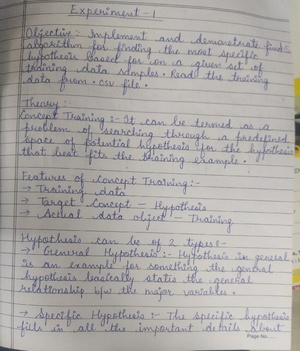 Experiment - 1
Objective :- Implement and demonstrate find-s
algorithm for finding the most specific
hypothesis based for on a given set of
training data samples. Read the training
data from .csv file.
Theory :-
Concept Training :- It can be termed as a
problem of searching through a predefined
space of potential hypothesis for the hypothesis
that best fits the training example.
Features of Concept Training :-
→ Training data
→ Target Concept - Hypothesis
→ Actual data object - Training
Hypothesis can be of 2 types :-
→ General Hypothesis :- Hypothesis in general
is an example for something the general
hypothesis basically states the general
relationship b/w the major variables.
→ Specific Hypothesis :- The specific hypothesis
fills in all the important details about
Page No.